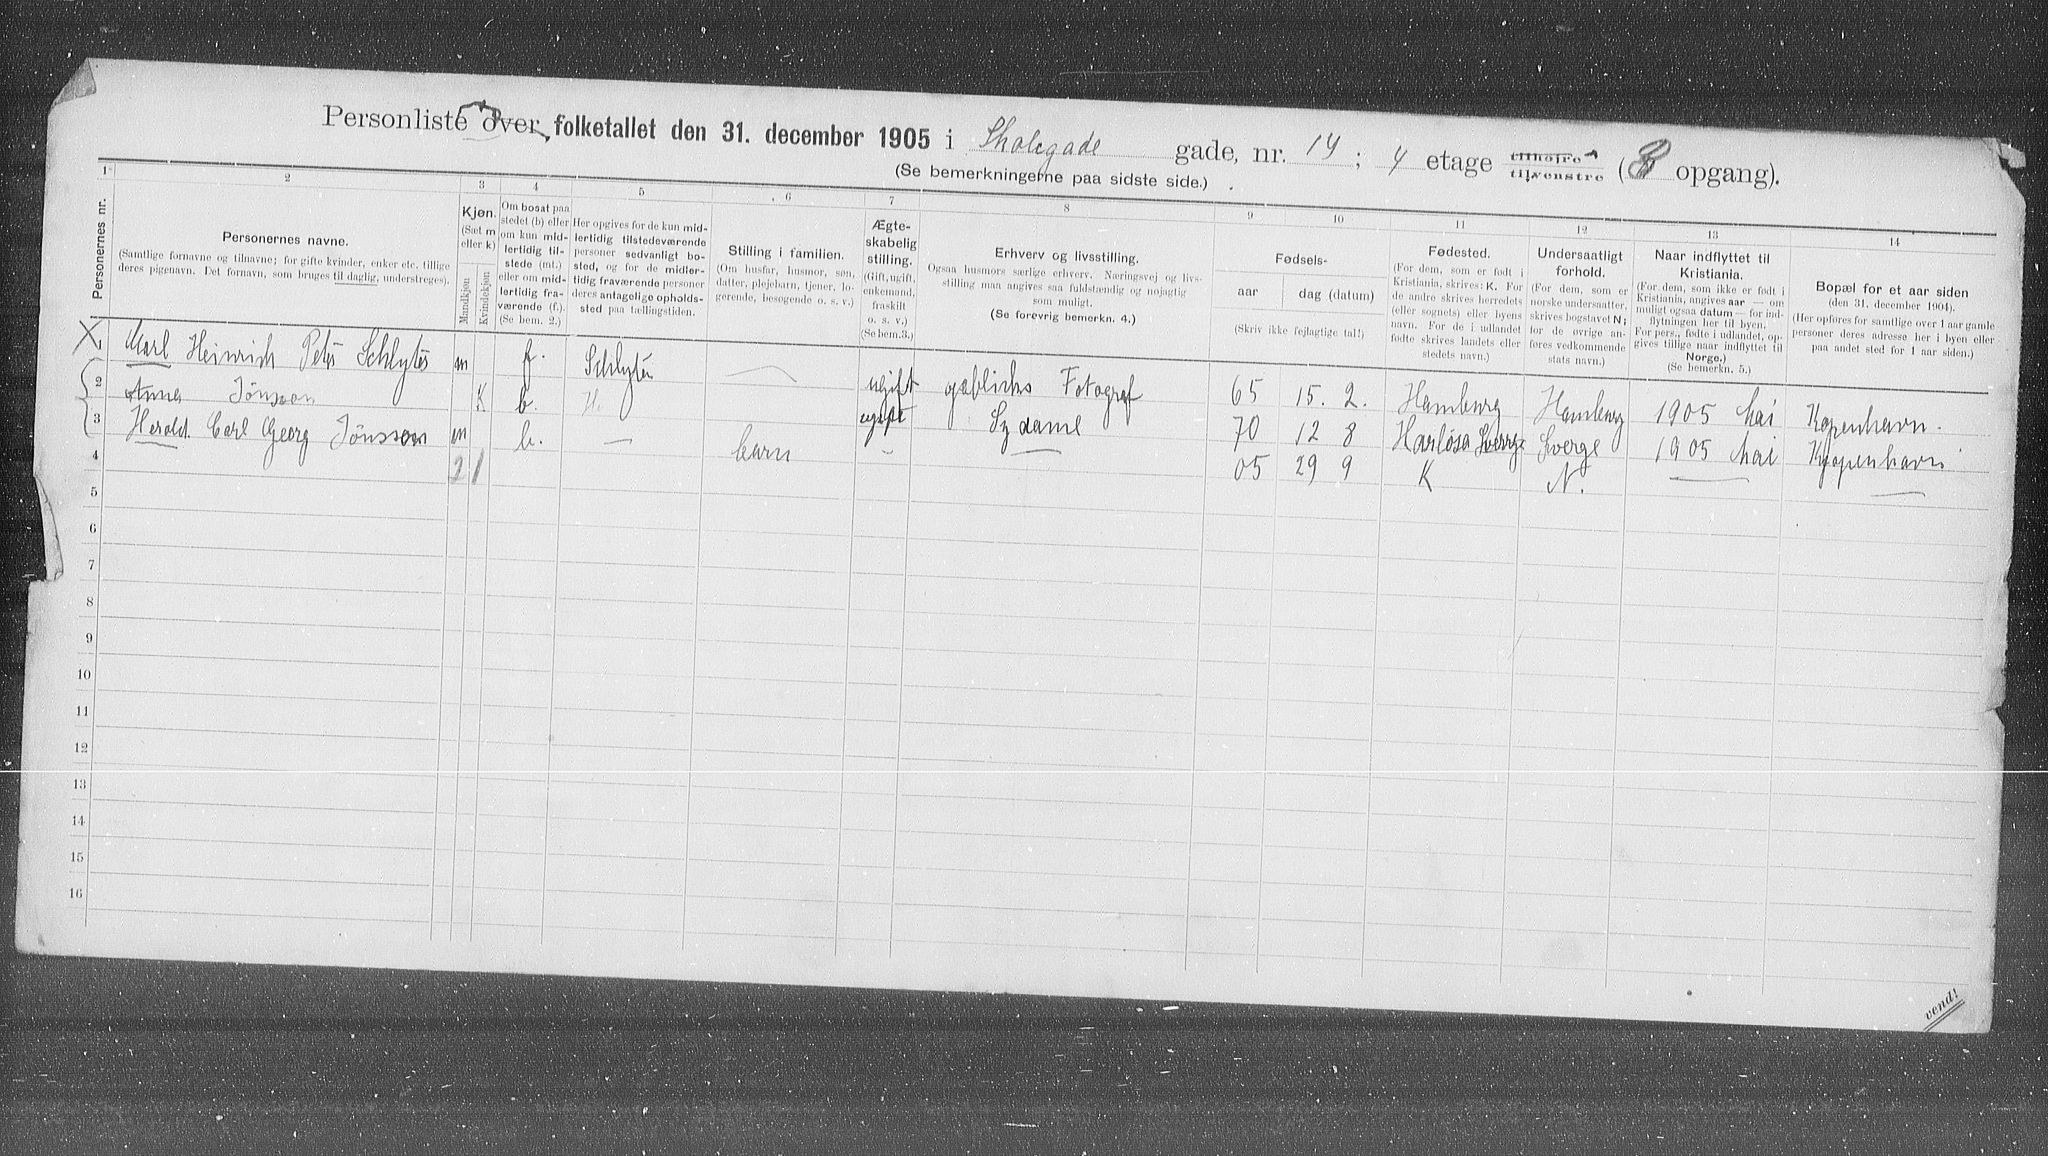 Personliste over folketallet den 31. december 1905 i Skolegade gade, nr. 14 ; 4 etage tilhøjre tilvenstre ( opgang).
(Se bemerkningerne paa sidste side.)
1 2 3 4 5 6 7 8 9 10 11 12 13 14
Personernes nr.
Personernes navne.
(Samtlige fornavne og tilnavne; for gifte kvinder, enker etc. tillige deres pigenavn. Det fornavn, som bruges til daglig, understreges).
Kjøn.
(Sæt m eller k)
Mandkjøn
Kvindekjøn
Om bosat paa stedet (b) eller om kun midlertidig tilstede (mt.) eller om midlertidig fraværende (f.).
(Se bem. 2.)
Her opgives for de kun midlertidig tilstedeværende personer sedvanligt bosted, og for de midlertidig fraværende personer deres antagelige opholdssted paa tællingstiden.
Stilling i familien.
(Om husfar, husmor, søn, datter, plejebarn, tjener, logerende, besøgende o. s. v.)
Ægteskabelig stilling.
(Gift, ugift, enkemand, fraskilt o. s. v.)
(Se bem. 3.)
Erhverv og livsstilling.
Ogsaa husmors særlige erhverv. Næringsvej og livsstilling maa angives saa fuldstændig og nøjagtig som muligt.
(Se forøvrig bemerkn. 4.)
Fødsels-
aar
dag (datum)
(Skriv ikke fejlagtige tal!)
Fødested.
(For dem, som er født i Kristiania, skrives: K. For de andre skrives herredets (eller sognets) eller byens navn. For de i udlandet fødte skrives landets eller stedets navn.)
Undersaatligt forhold.
(For dem, som er norske undersaatter, skrives bogstavet N; for de øvrige anføres vedkommende stats navn.)
Naar indflyttet til Kristiania.
(For dem, som ikke er født i Kristiania, angives aar — om muligt ogsaa datum — for indflytningen her til byen. For pers., fødte i udlandet, opgives tillige naar indflyttet til Norge.)
(Se bemerkn. 5.)
Bopæl for et aar siden
(den 31. december 1904).
(Her opføres for samtlige over 1 aar gamle personer deres adresse her i byen eller paa andet sted for 1 aar siden.)
1 Karl Heinrich Peter Schlyter m f. Schlyter ugift Fotograf 65 15. 2. Hamburg Hamburg 1905 Mai Kopenhavn.
2 Anna Jönsson K b. ugift Sydame 70 12 8 Harlösa Sverge Sverge 1905 Mai Kjøpenhavn
3 Herold Carl Georg Jönsson m b. — barn - — 05 29 9 K N. — —
4 2 1
5
6
7
8
9
10
11
12
13
14
15
16
vend!